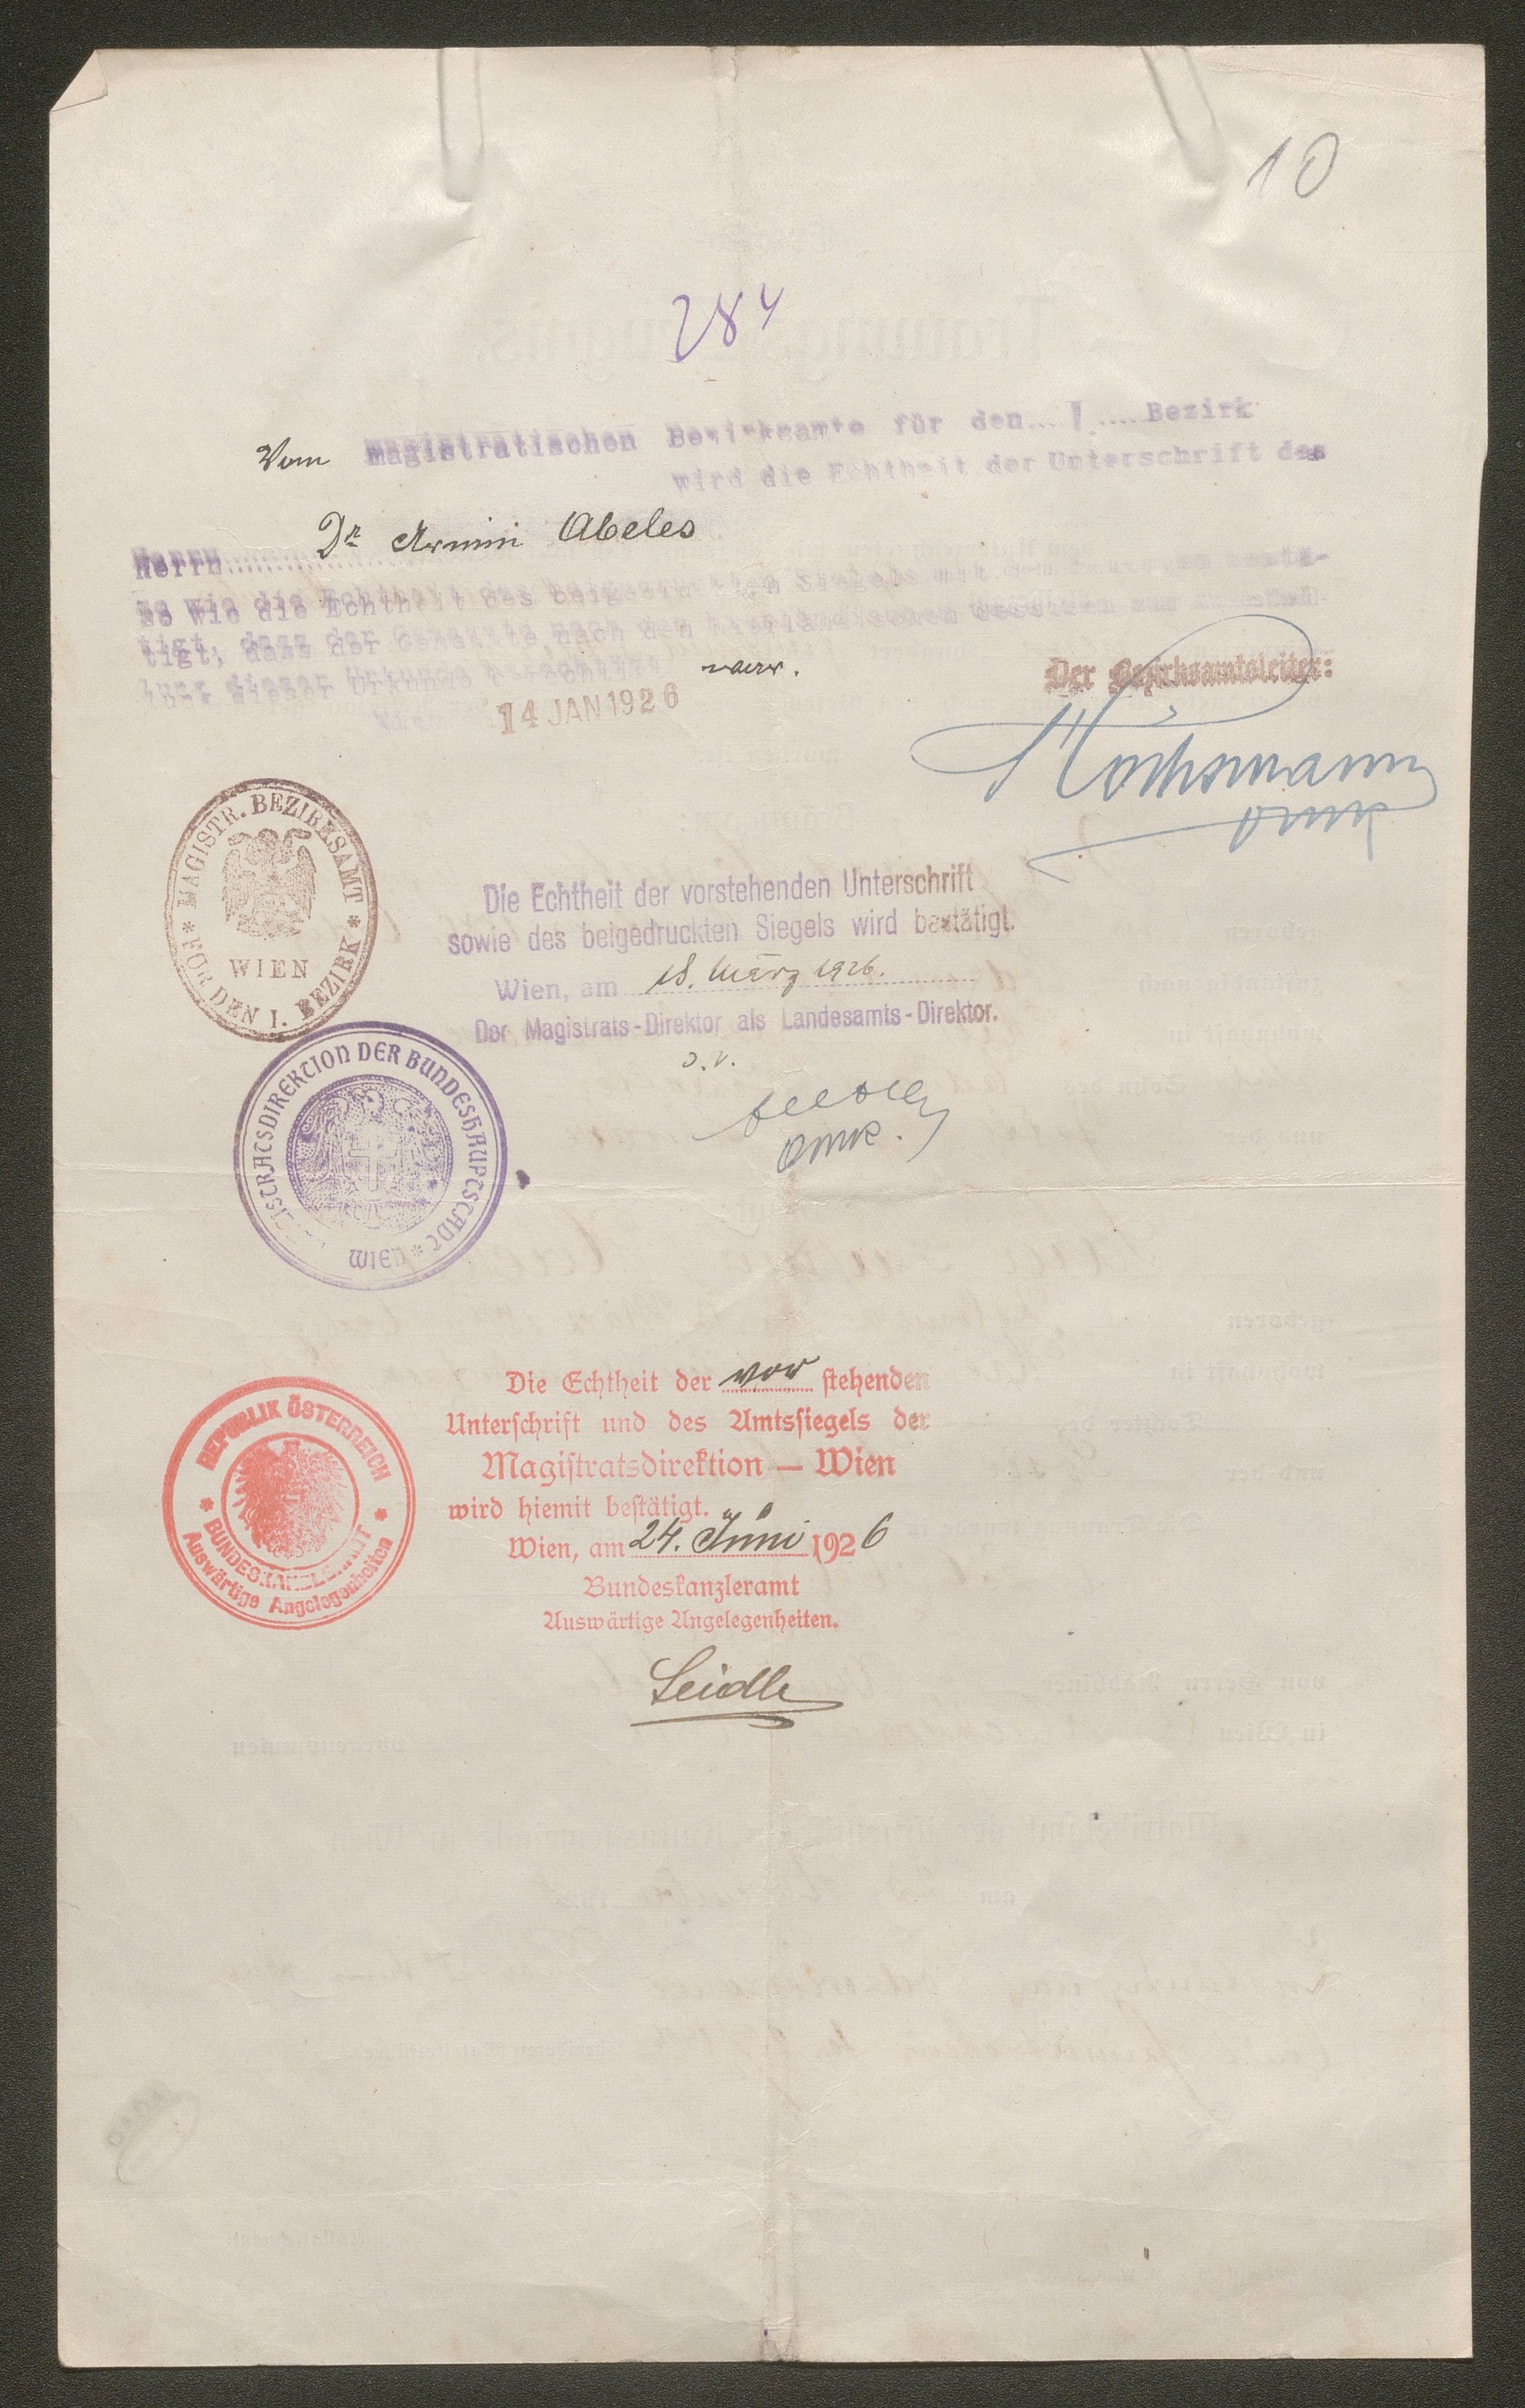 10
284
Vom magistratischen Bezirksamte für den I. Bezirk
wird die Echtheit der Unterschrift des
Herrn Dr Armin Abeles
so wie die Echtheit des beigedruckten Siegels mit dem bestä-
tigt, dass der Genannte nach den hierländischen Gesetzen zur
dieser Urkunde berechtigt war.
Wien 14 JAN 1926
Der Bezirksamtsleiter:
MAGISTR. BEZIRKSAMT
FÜR DEN I. BEZIRK
WIEN
Die Echtheit der vorstehenden Unterschrift
sowie des beigedruckten Siegels wird bestätigt.
Wien, am 18. März 1926.
Der Magistrats-Direktor als Landesamts-Direktor.
MAGISTRATSDIREKTION DER BUNDESHAUPTSTADT
WIEN
Die Echtheit der vor stehenden
Unterschrift und des Amtssiegels der
Magistratsdirektion — Wien
wird hiemit bestätigt.
Wien, am 24. Juni 1926
Bundeskanzleramt
Auswärtige Angelegenheiten.
Seidle
REPUBLIK ÖSTERREICH
BUNDESKANZLERAMT
Auswärtige Angelegenheiten